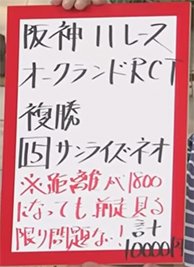 阪神11レース
オークランドRCT
複勝
15 サンライズネオ
※距離が1800
になっても前走見る
限り問題な!計
10000円